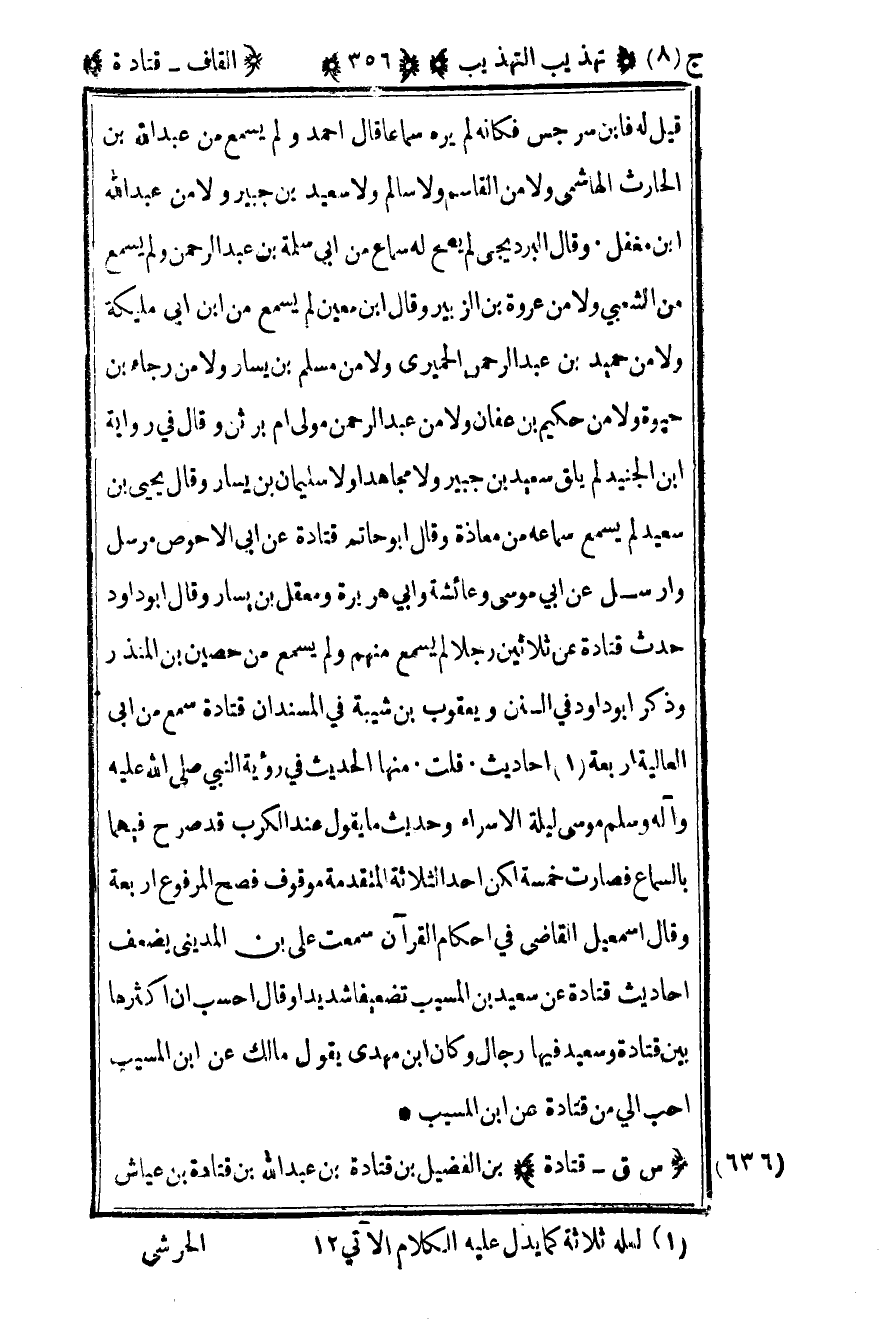 ج (٨) ﴿ تهذيب التهذيب ﴾ ﴿ ٣٥٦ ﴾ ﴿ القاف ـ قتادة ﴾
قيل له فابن سرجس فكانه لم يره سماعا قال احمد و لم يسمع من عبدالله بن
الحارث الهاشمى ولا من القاسم ولا سالم ولا سعيد بن جبير و لا من عبدالله
ابن مغفل · وقال البرديجى لم يصح له سماع من ابي سلمة بن عبدالرحمن ولم يسمع
من الشعبي ولا من عروة بن الزبير وقال ابن معين لم يسمع من ابن ابي مليكة
ولا من حميد بن عبدالرحمن الحميرى ولا من مسلم بن يسار ولا من رجاء بن
حيوة ولا من حكيم بن عفان ولا من عبدالرحمن مولى ام برثن و قال في رواية
ابن الجنيد لم يلق سعيد بن جبير ولا مجاهدا ولا سليمان بن يسار وقال يحيى بن
سعيد لم يسمع سماعه من معاذة وقال ابوحاتم قتادة عن ابي الاحوص مرسل
وارســل عن ابي موسى وعائشة وابي هريرة ومعقل بن يسار وقال ابوداود
حدث قتادة عن ثلاثين رجلا لم يسمع منهم ولم يسمع من حصين بن المنذر
وذكر ابوداود في السنن و يعقوب بن شيبة في المسند ان قتادة سمع من ابى
العالية اربعة (١) احاديث · قلت · منها الحديث في رؤية النبي صلى الله عليه
وآله وسلم موسى ليلة الاسراء وحديث ما يقول عند الكرب قد صرح فيهما
بالسماع فصارت خمسة لكن احد الثلاثة المتقدمة موقوف فصح المرفوع اربعة
وقال اسمعيل القاضى في احكام القرآن سمعت على بن المدينى يضعف
احاديث قتادة عن سعيد بن المسيب تضعيفا شديدا وقال احسب ان اكثرها
بين قتادة وسعيد فيها رجال وكان ابن مهدى يقول مالك عن ابن المسيب
احب الي من قتادة عن ابن المسيب •
(٦٣٦) ﴿ س ق ـ قتادة ﴾ بن الفضيل بن قتادة بن عبدالله بن قتادة بن عياش
(١) لعله ثلاثة كما يدل عليه الكلام الآتي ١٢ الحرشى